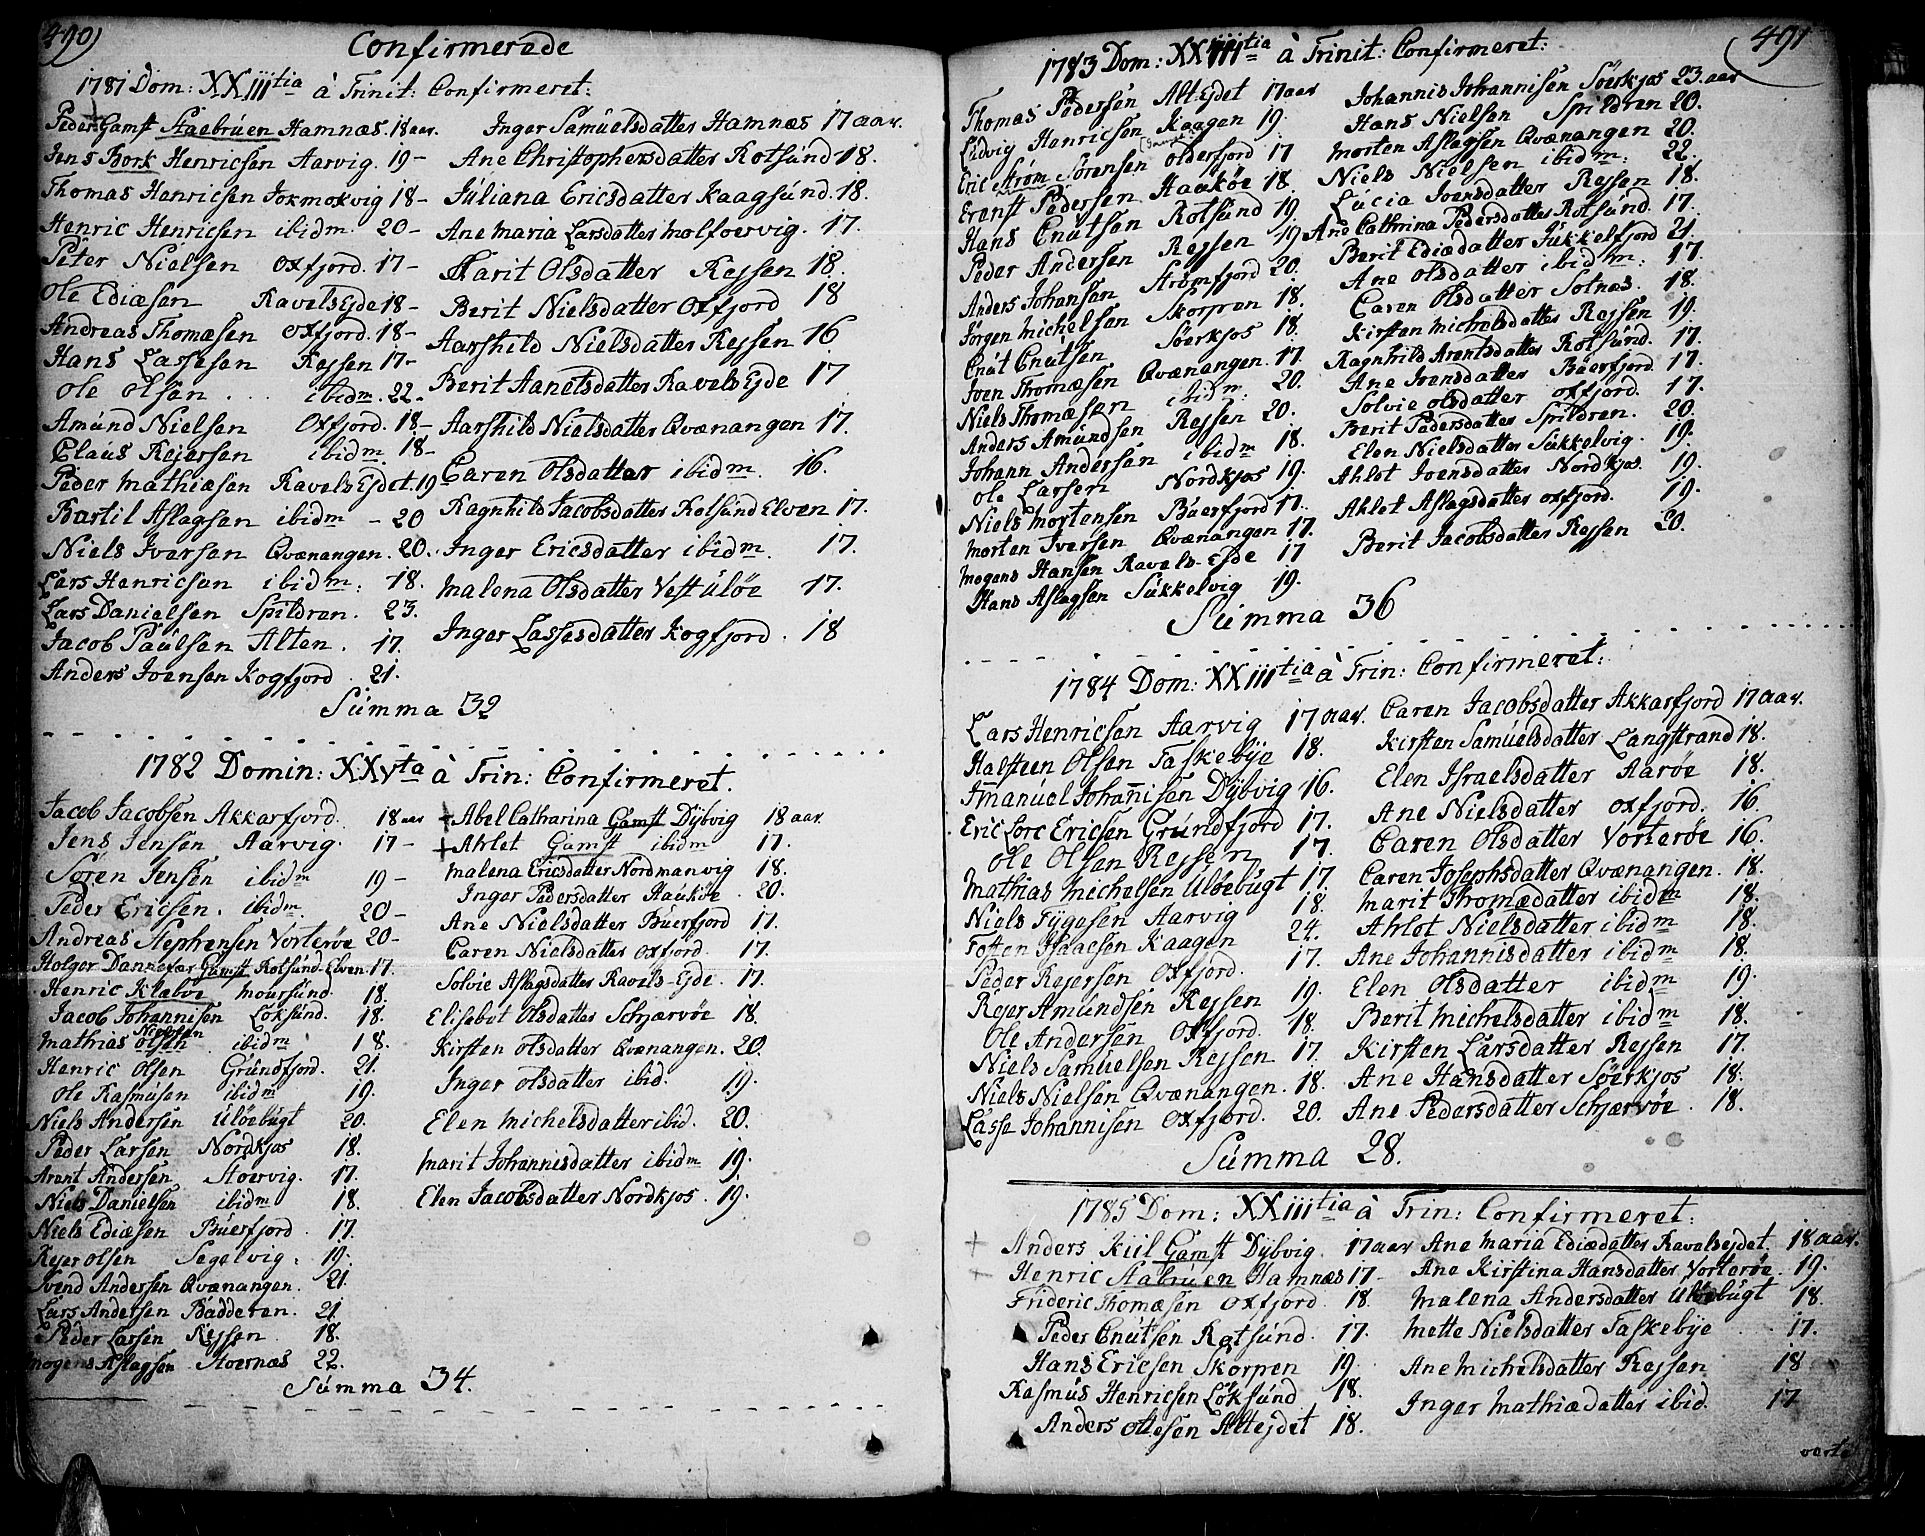 490)
Confirmerede
1781 Dom: XXIIItia à Trinit: Confirmeret:
Peder Gamst Staebruen Hamnæs. 18 aar.
Jens Bork Henricsen Aarvig. 19 -
Thomas Henricsen Jokmokvig 18 -
Henric Henricsen ibidm. 20 -
Peter Nielsen Oxfjord. 17 -
Ole Ediæsen Ravels Ejde 18 -
Andreas Thomæsen Oxfjord. 18 -
Hans Lassesen Rejsen 17 -
Ole Olsen . . . ibidm. 22 -
Amund Nielsen Oxfjord. 18 -
Claus Rejersen ibidm. 18 -
Peder Mathiæsen Ravels Ejdet. 19
Bartil Aslagsen ibidm - 20
Niels Iversen Qvænangen. 20.
Lars Henricsen ibidm: 18.
Lars Danielsen Spildren. 23.
Jacob Paulsen Alten. 17.
Anders Joensen Kogfjord. 21.
Inger Samuelsdatter Hamnæs 17 aar.
Ane Christophersdatter Rotsund 18.
Juliana Ericsdatter Kaagsund. 18.
Ane Maria Larsdatter Molfoervig. 17.
Marit Olsdatter Rejsen 18.
Berit Nielsdatter Oxfjord 18
Aarshild Nielsdatter Rejsen 16
Berit Aanetsdatter Ravels Ejde 17
Aarshild Nielsdatter Qvænangen 17.
Caren Olsdatter ibidm. 16.
Ragnhild Jacobsdatter Rotsund Elven 17.
Inger Ericsdatter ibidm. 17.
Malena Olsdatter Vest Uløe 17.
Inger Lassesdatter Kogfjord. 18
Summa 32
1782 Domin: XXVta à Trin: Confirmeret.
Jacob Jacobsen Akkarfjord. 18 aar
Jens Jensen Aarvig. 17 -
Søren Jensen ibidm 19 -
Peder Ericsen. ibidm. 20 -
Andreas Stephensen Vorterøe 20 -
Holger Dannefær Gamst Rotsund-Elven 17.
Henric Klæboe Moursund. 18.
Jacob Johannisen Løksund. 18.
Mathias Olsen Nielsen ibidm 18.
Henric Olsen Grundfjord. 21.
Ole Rasmusen ibidm 19.
Niels Andersen Uløebugt 20.
Peder Larsen Nordkjos 18.
Arent Andersen Stoervig. 17.
Niels Danielsen ibidm 18.
Niels Ediæsen Buerfjord. 17.
Rejer Olsen Segelvig. 19.
Svend Andersen Qvænangen. 21.
Lars Andersen Badderen. 21
Peder Larsen Rejsen. 18.
Mogens Aslagsen Stoernæs 22.
+ Abel Catharina Gamst Dybvig 18 aar.
+ Ahlet Gamst ibidm 17.
Malena Ericsdatter Nordmanvig 18.
Inger Pedersdatter Haukøe. 20.
Ane Nielsdatter Buerfjord 17.
Caren Nielsdatter Oxfjord. 17.
Solvie Aslagsdatter Ravels-Ejde. 17.
Elisabet Olsdatter Schjærvøe 18.
Kirsten Olsdatter Qvænangen. 20.
Inger Olsdatter ibid. 19.
Elen Michelsdatter ibid. 20.
Marit Johannisdatter ibidm 19.
Elen Jacobsdatter Nordkjos. 19.
Summa 34.
491
1783 Dom: XXIIItia à Trinit: Confirmeret:
Thomas Pedersen Alt Ejdet 17 aar
Ludvig Hanricsen Kaagen 19.
Eric Strøm Sørensen Olderfjord 17
Ernst Pedersen Haukøe 18.
Hans Cnutsen Rotsund 19.
Peder Andersen Rejsen 19.
Anders Johansen Strømfjord 20.
Jørgen Michelsen Skorpen 18.
Cnut Cnutsen Søerkjos 18.
Joen Thomæsen Qvænangen. 17.
Niels Thomæsen ibidm. 20.
Anders Amundsen Rejsen 20.
Johann Andersen ibidm 18.
Ole Larsen Nordkjos 19.
Niels Mortensen Buerfjord 17.
Morten Iversen Qvænangen 17.
Mogens Hansen Ravels-Ejde 17
Hans Aslagsen Sukkelvig 19.
Johannis Johannisen Søerkjos 23. aar
Hans Nielsen Spildren 20.
Morten Aslagsen Qvænangen 20.
Niels Nielsen ibidm: 22.
Lucia Joensdatter Rejsen 18.
Ane Cathrina Pedersdatter Rotsund. 17.
Berit Ediædatter Jukkelfjord 21.
Ane Olsdatter ibidm: 17.
Caren Olsdatter Sotnæs. 18.
Kirsten Michelsdatter Rejsen 19.
Ragnhild Arentsdatter Rotsund. 17.
Ane Joensdatter Buerfjord 17.
Solvie Olsdatter Oxfjord. 17.
Berit Pedersdatter Spildren. 20.
Elen Nielsdatter Sukkelvig. 19.
Ahlet Joensdatter Nordkjos. 19.
Ahlet Aslagsdatter Oxfjord. 19.
Berit Jacobsdatter Rejsen 20.
Summa 36
1784 Dom: XXIIItia à Trin: Confirmeret:
Lars Henricsen Aarvig 17 aar.
Halsteen Olsen Taskebye 18.
Imanuel Johannisen Dybvig 16.
Eric Lorc Ericsen Grundfjord 17.
Ole Olsen Rejsen 17.
Mathias Michelsen Uløebugt 17.
Niels Tygesen Aarvig 18.
Tosten Isaacsen Kaagen 24.
Peder Rejersen Oxfjord. 17.
Rejer Amundsen Rejsen 19.
Ole Andersen Oxfjord. 18.
Niels Samuelsen Rejsen 17.
Niels Nielsen Qvænangen. 18.
Lasse Johannisen Oxfjord. 20.
Caren Jacobsdatter Akkarfjord 17 aar.
Kirsten Samuelsdatter Langstrand 18.
Elen Israelsdatter Aarøe 18.
Ane Nielsdatter Oxfjord. 16.
Caren Olsdatter Vorterøe 16.
Caren Josephsdatter Qvænangen. 18.
Marit Thomædatter ibidm 18.
Ahlet Nielsdatter ibidm 18.
Ane Johannisdatter ibidm 18.
Elen Olsdatter ibidm 19.
Berit Michelsdatter ibidm 18.
Kirsten Larsdatter Rejsen 17.
Ane Hansdatter Søerkjos 18.
Ane Pedersdatter Schjærvøe. 18.
Summa 28.
1785 Dom: XXIIItia à Trin: Confirmeret:
+ Anders Kiil Gamst Dybvig. 17 aar
+ Henric Stabruen Hamnæs 17 -
Frideric Thomæsen Oxfjord. 18.
Peder Cnutsen Rotsund. 17.
Hans Ericsen Skorpen 19.
Rasmus Henricsen Løksund 18.
Anders Ollesen Altejdet 18.
Ane Maria Ediædatter Ravelsejdet. 18 aar.
Ane Kirstina Hansdatter Vorterøe. 19.
Malena Andersdatter Uløebugt 18.
Mette Nielsdatter Taskebye 17.
Ane Michelsdatter Rejsen 18
Inger Mathiædatter ibid. 17